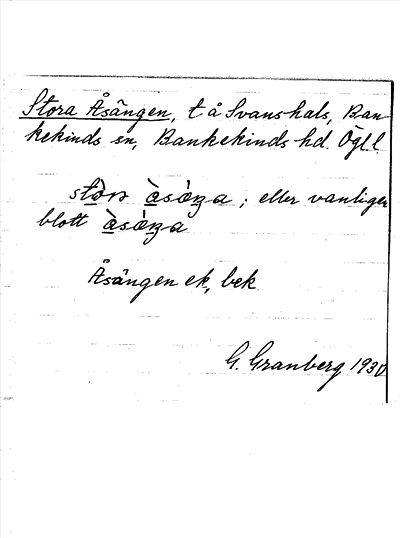 Stora Åsängen, t å Svanshals, Ban-
kekinds sn, Bankekinds hd. Ögl.
; eller vanligen
blott
Åsängen ek, bek
G. Granberg 1930